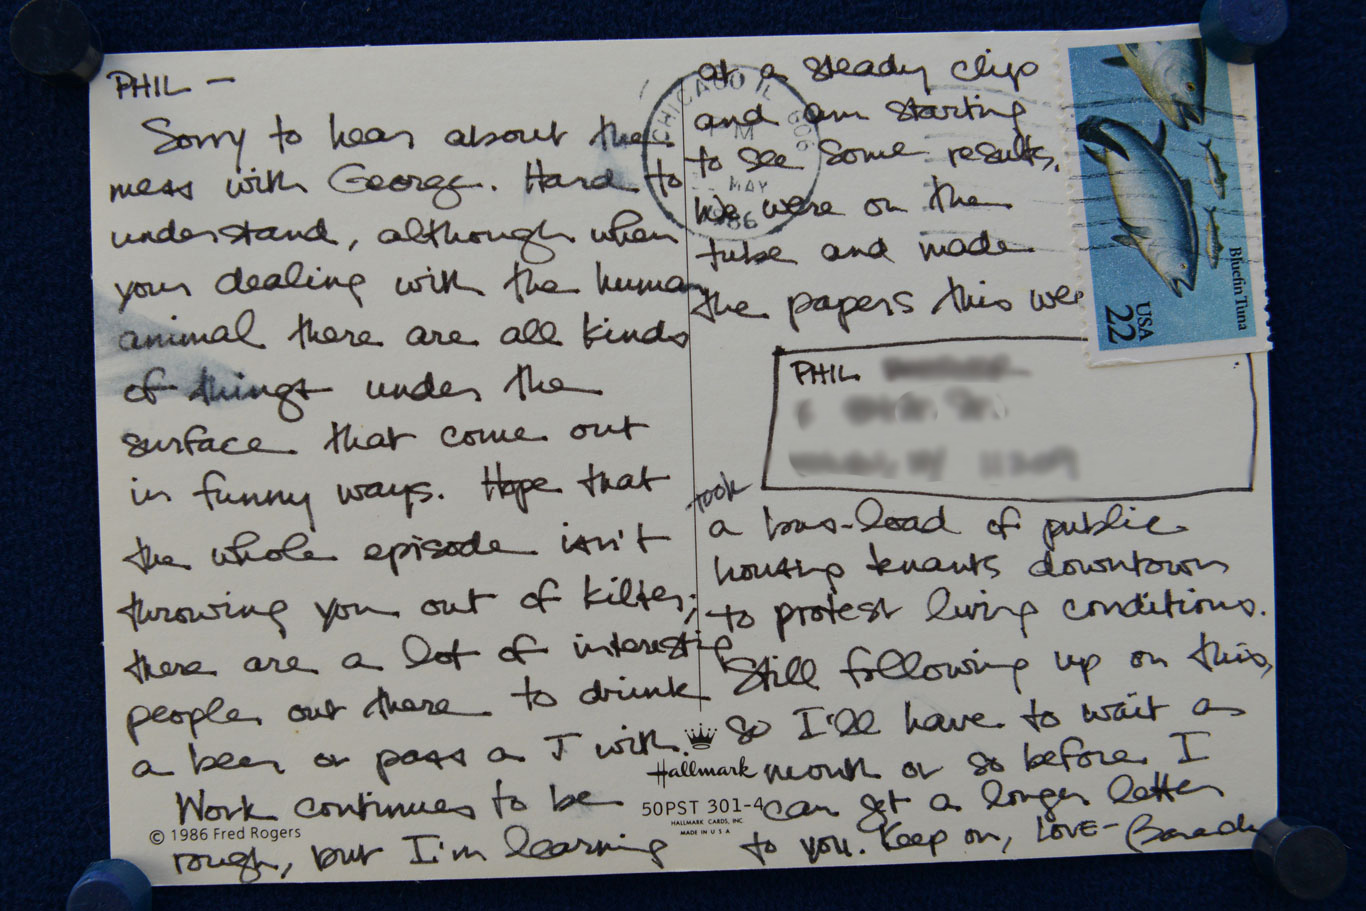 PHIL —
Sorry to hear about the
mess with George. Hard to
understand, although when
your dealing with the human
animal there are all kinds
of things under the
surface that come out
in funny ways. Hope that
the whole episode isn't
throwing you out of kilter;
there are a lot of interesting
people out there to drink
a beer or pass a J with.
Work continues to be
rough, but I'm learning
© 1986 Fred Rogers
at a steady clip
and am starting
to see some results.
We were on the
tube and made
the papers this wee
took
a bus-load of public
housing tenants downtown
to protest living conditions.
Still following up on this,
so I'll have to wait a
month or so before I
can get a longer letter
to you. Keep on, LOVE — Barack
PHIL
CHICAGO IL 606
M
MAY
86
Bluefin Tuna
USA
22
Hallmark
50PST 301-4
HALLMARK CARDS, INC.
MADE IN U S A